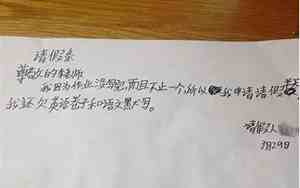 请假条
尊敬的老师
我因为作业没写完,而且不止一个,所以我申请请假
我还欠英语卷子和语文黑大写。
请假人
38298